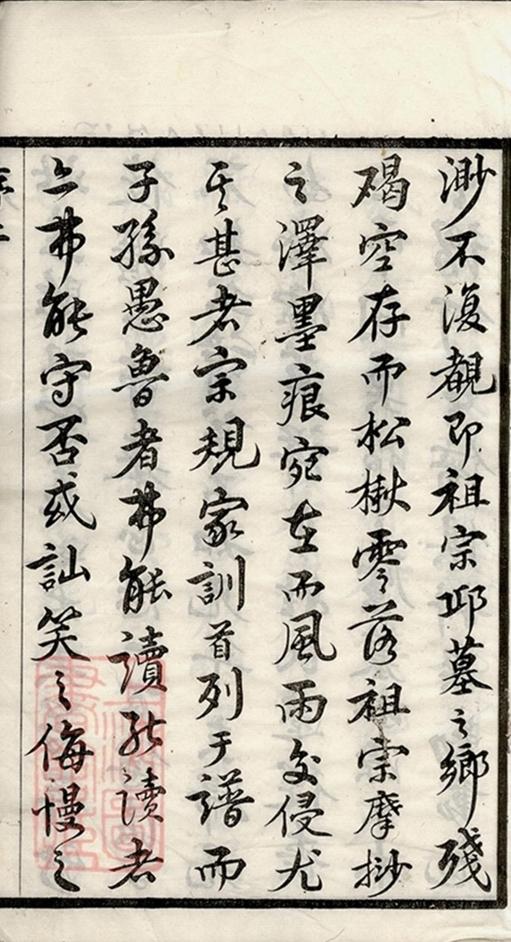 渺不復覩即祖宗邱墓之鄉殘
碣空存而松楸零落祖宗摩挲
之澤墨痕宛在而風雨交侵尤
其甚者宗規家訓首列于譜而
子孫愚魯者弗能讀能讀者
亦弗能守否或訕笑之侮慢之